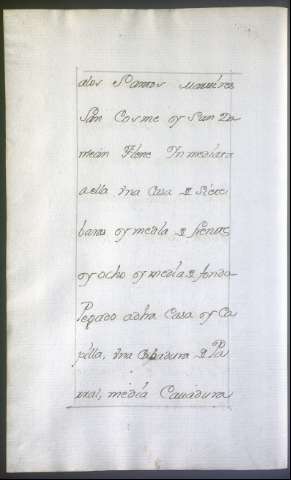 alos Santos Martires
San Cosme oy San Da
mean tiene Inmediata
aella Vna Casa de Siete
baras oy media de frente
oy ocho oy media de fondo
Pegado adha Casa oy Ca
pilla, Vna Caballadura de Pa
xar, media Cauadura